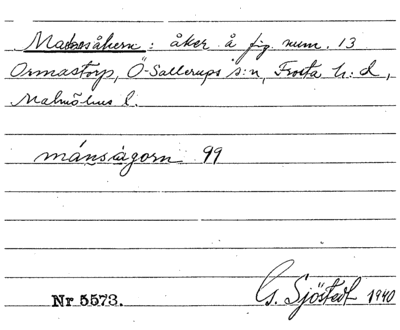 Månsåkern: åker å fig. num. 13
Ormastorp, Ö-Sallerups s:n, Frosta h:d,
Malmöhus l.
månságorn 99
Nr 5573.
G. Sjöstedt 1940